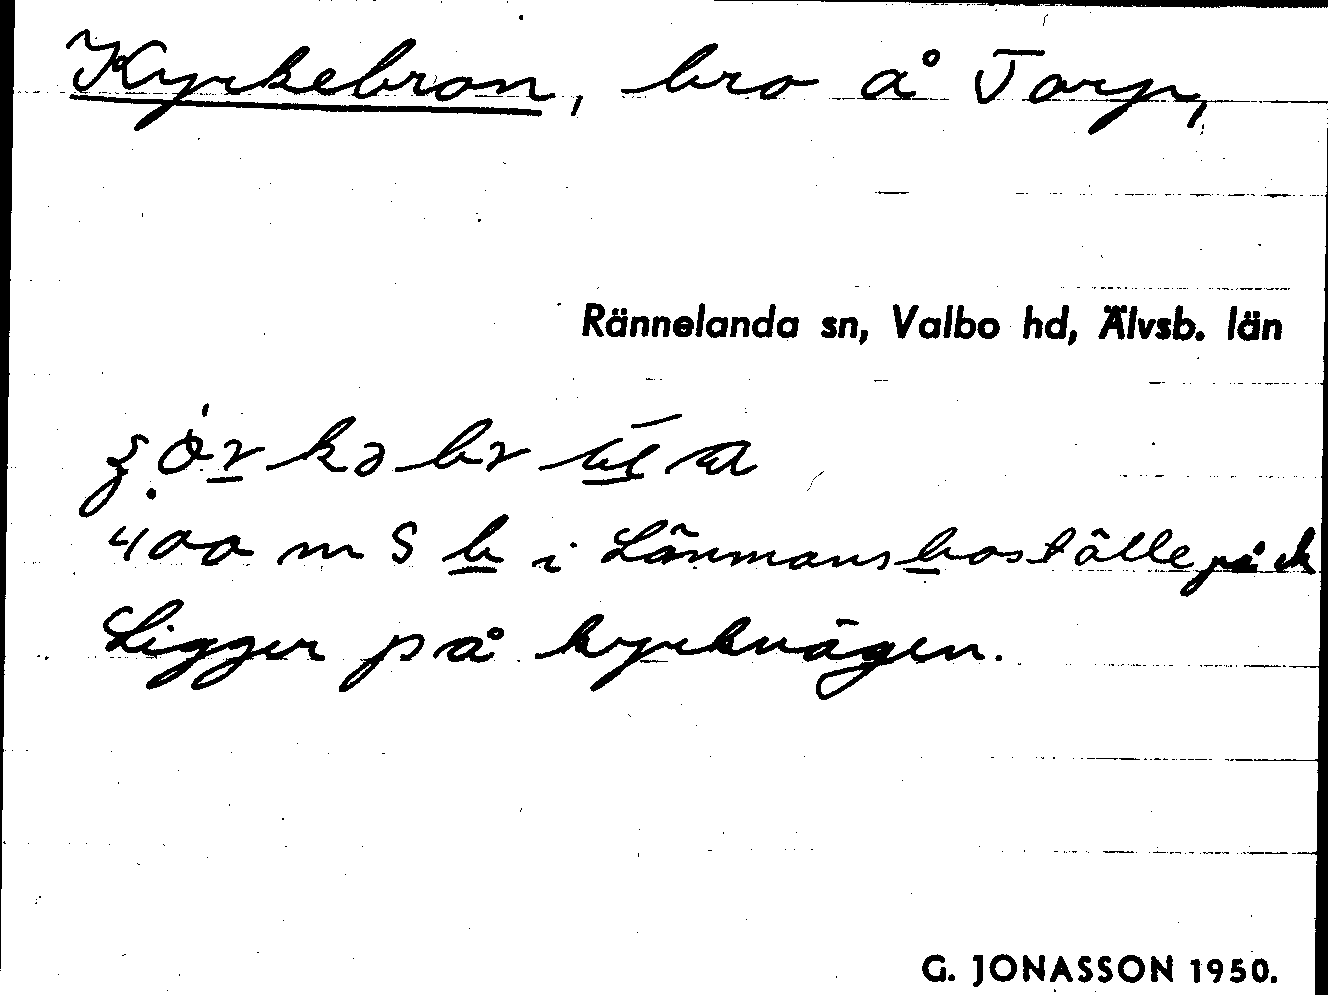 Kyrkebron, bro å Torp,
Rännelanda sn, Valbo hd, Älvsb. län
400 m S b i Länmansboställe på ek
Ligger på kyrkvägen.
G. JONASSON 1950.